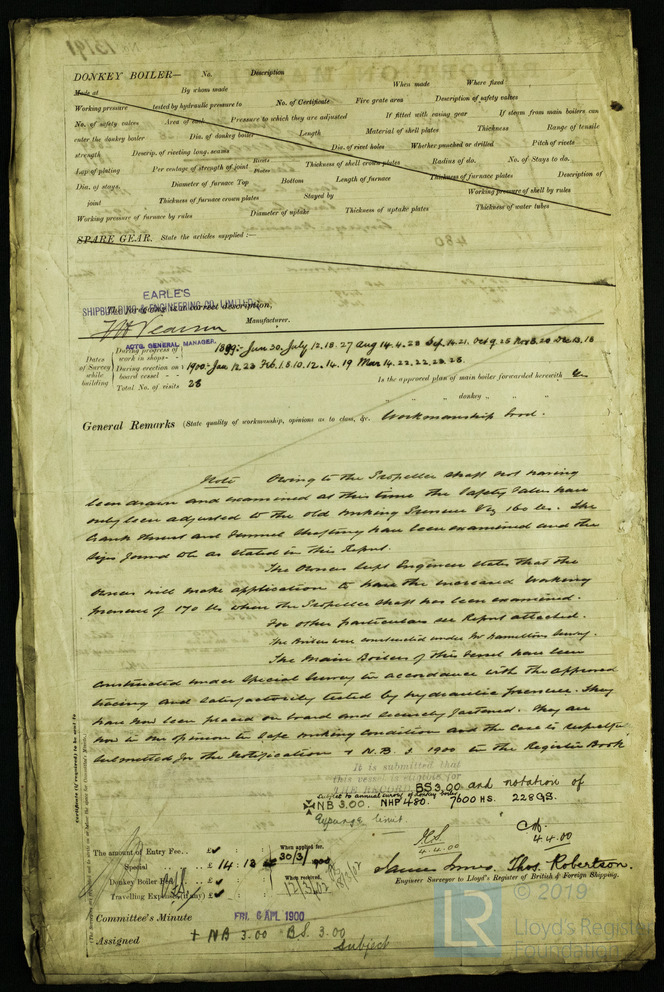 No. 13191
DONKEY BOILER— No. Description
Made at By whom made When made Where fixed
Working pressure tested by hydraulic pressure to No. of Certificate Fire grate area Description of safety valves
No. of safety valves Area of each Pressure to which they are adjusted If fitted with easing gear If steam from main boilers can
enter the donkey boiler Dia. of donkey boiler Length Material of shell plates Thickness Range of tensile
strength Descrip. of riveting long. seams Dia. of rivet holes Whether punched or drilled Pitch of rivets
Lap of plating Per centage of strength of joint Rivets Plates Thickness of shell crown plates Radius of do. No. of Stays to do.
Dia. of stays. Diameter of furnace Top Bottom Length of furnace Thickness of furnace plates Description of
joint Thickness of furnace crown plates Stayed by Working pressure of shell by rules
Working pressure of furnace by rules Diameter of uptake Thickness of uptake plates Thickness of water tubes
SPARE GEAR. State the articles supplied:—
EARLE'S
SHIPBUILDING & ENGINEERING CO. LIMITED.
The foregoing is a correct description,
Manufacturer.
ACTG. GENERAL MANAGER.
Dates of Survey while building
During progress of work in shops - - 1899:- Jun 30. July 12.18.27 Aug 14.4.28 Sep. 14.21. Oct 9.25 Nov 8.20 Dec 13.18
During erection on board vessel - - - 1900:- Jan 12.23 Feb. 1.8.10.12.14.19 Mar 14.22.22.28.28.
Total No. of visits 28
Is the approved plan of main boiler forwarded herewith
" " " donkey " " "
General Remarks (State quality of workmanship, opinions as to class, &c. Workmanship Good.
Note Owing to the Propeller shaft not having
been drawn and examined at this time the Safety Valves have
only been adjusted to the old working Pressure Viz 160 lbs. The
Crank Thrust and Tunnel Shafting have been examined and the
sizes found to be as stated in this Report.
The Owners Supt Engineer states that the
Owners will make application to have the increased working
pressure of 170 lbs when the Propeller shaft has been examined.
For other particulars see Report attached.
The Boilers were constructed under Mr Hamiltons Survey.
The Main Boilers of this Vessel have been
constructed under Special Survey in accordance with the approved
tracing and satisfactorily tested by hydraulic pressure. They
have now been placed on board and securely fastened. They are
now in our opinion in Safe working Condition and the Case is respectfully
submitted for the Notification + N.B. 3 1900 in the Register Book
It is submitted that
this vessel is eligible for
THE RECORD BS 3.00 and notation of
subject to annual survey of donkey boiler
NB 3.00. NHP 480. 7600 HS. 228 GS.
Expunge limit
4.4.00
4.4.00
Certificate (if required) to be sent to
The amount of Entry Fee.. £
Special .. .. £ 14. 12
Donkey Boiler Fee .. £
Travelling Expenses (if any) £
When applied for. 30/3/1900
When received. 12/3/02
James Jones Thos. Robertson.
Engineer Surveyor to Lloyd's Register of British & Foreign Shipping.
Committee's Minute FRI. 6 APL 1900
Assigned + NB 3.00 BS. 3.00
Subject
LR
© 2019
Lloyd's Register
Foundation